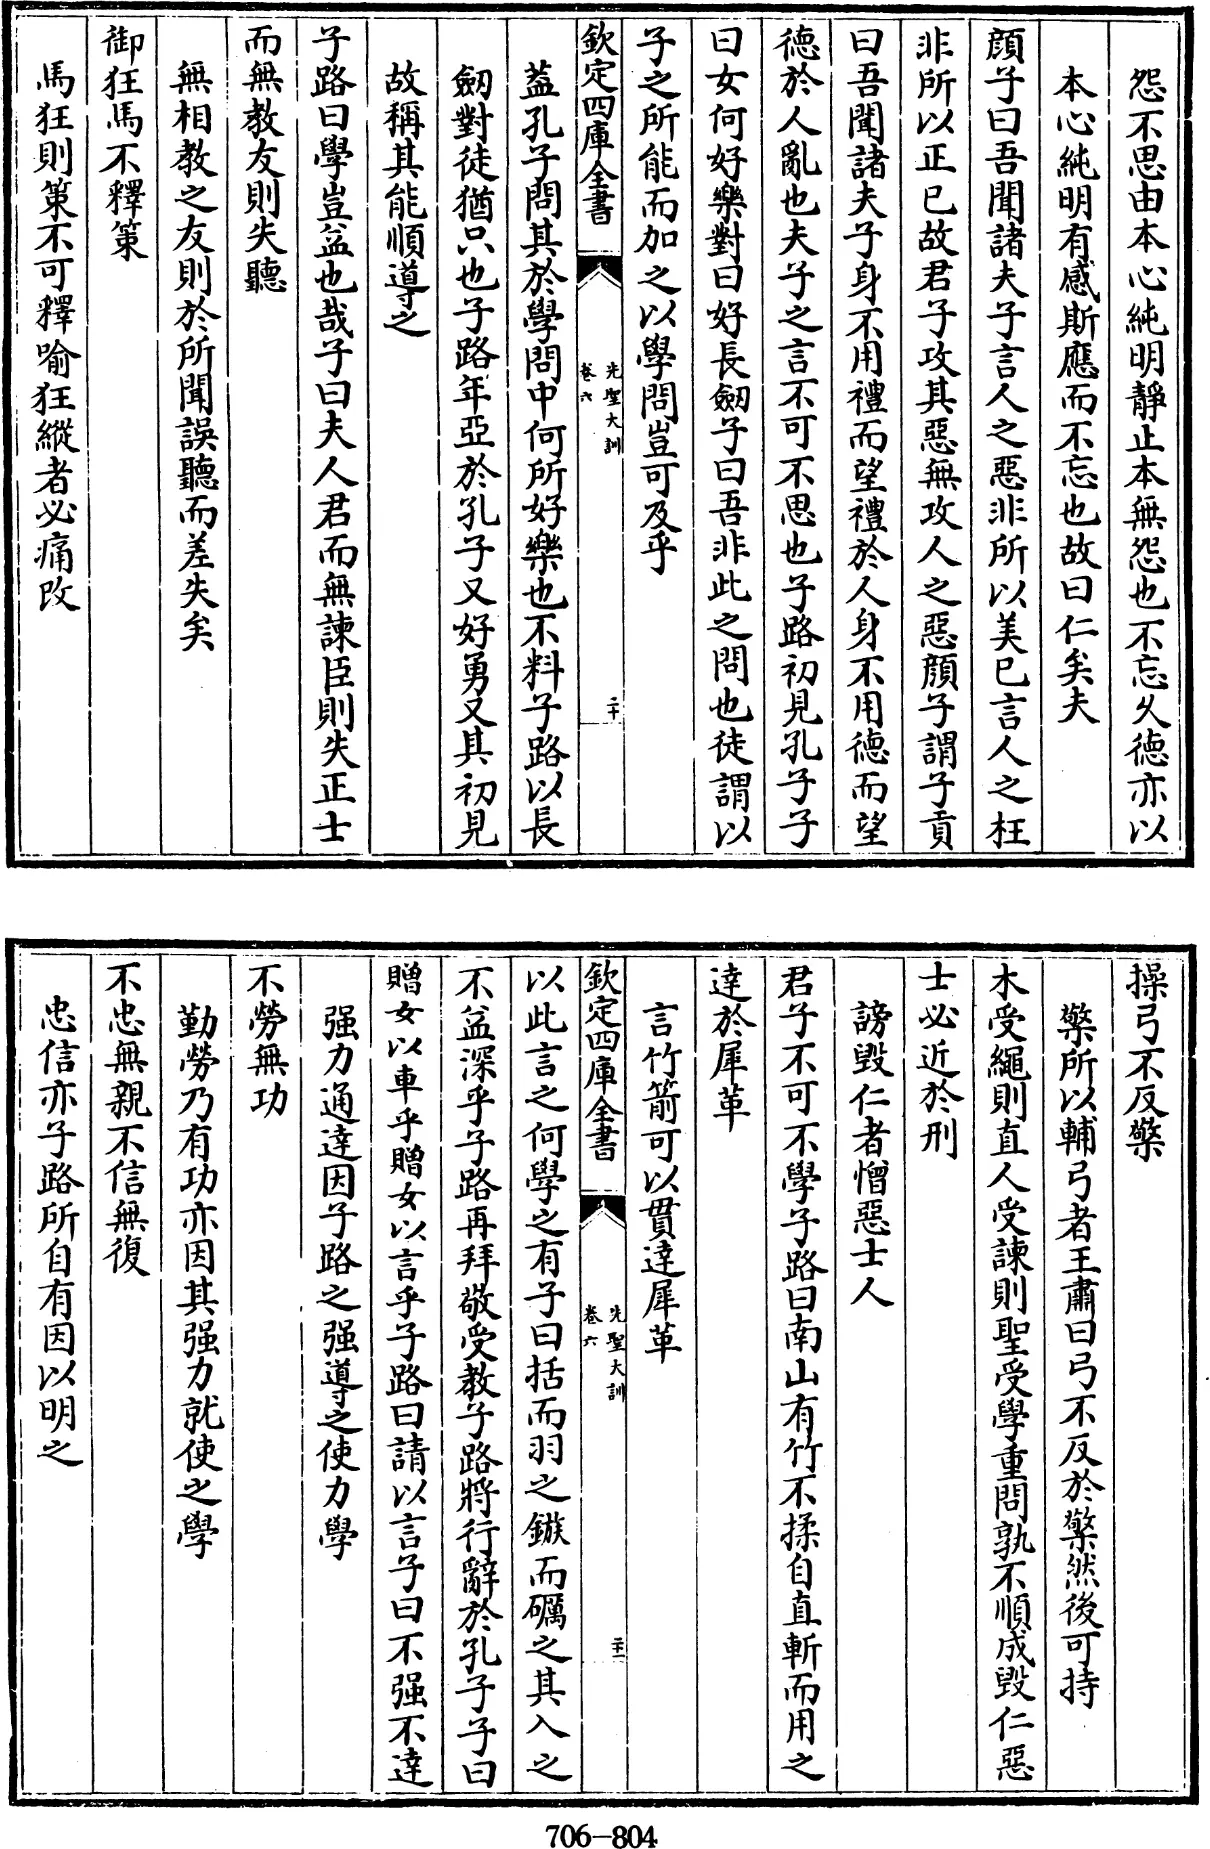 怨不思由本心純明靜止本無怨也不忘久德亦以
本心純明有感斯應而不忘也故曰仁矣夫
顔子曰吾聞諸夫子言人之惡非所以美已言人之枉
非所以正已故君子攻其惡無攻人之惡顔子謂子貢
曰吾聞諸夫子身不用禮而望禮於人身不用德而望
德於人亂也夫子之言不可不思也子路初見孔子子
曰女何好樂對曰好長劒子曰吾非此之問也徒謂以
子之所能而加之以學問豈可及乎
欽定四庫全書
先聖大訓
卷六
二十
蓋孔子問其於學問中何所好樂也不料子路以長
劒對徒猶只也子路年亞於孔子又好勇又其初見
故稱其能順導之
子路曰學豈益也哉子曰夫人君而無諫臣則失正士
而無教友則失聽
無相教之友則於所聞誤聽而差失矣
御狂馬不釋策
馬狂則策不可釋喻狂縱者必痛改
操弓不反檠
檠所以輔弓者王肅曰弓不反於檠然後可持
木受繩則直人受諫則聖受學重問孰不順成毁仁惡
士必近於刑
謗毁仁者憎惡士人
君子不可不學子路曰南山有竹不揉自直斬而用之
達於犀革
言竹箭可以貫達犀革
欽定四庫全書
先聖大訓
卷六
二十一
以此言之何學之有子曰括而羽之鏃而礪之其入之
不益深乎子路再拜敬受教子路將行辭於孔子子曰
贈女以車乎贈女以言乎子路曰請以言子曰不强不達
强力通達因子路之强導之使力學
不勞無功
勤勞乃有功亦因其强力就使之學
不忠無親不信無復
忠信亦子路所自有因以明之
706-804